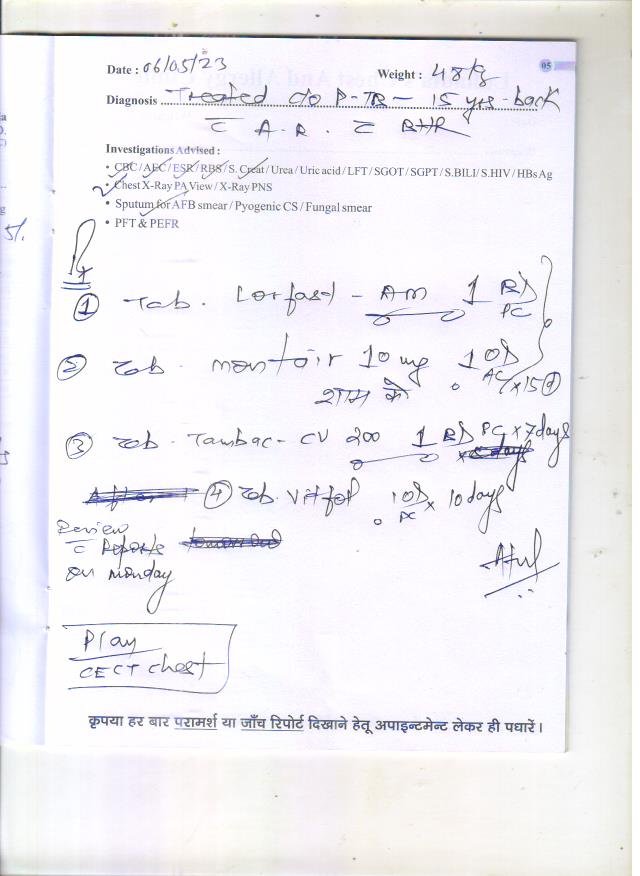 05
Date : 06/05/23 Weight : 48 kg
Diagnosis Treated c/o P-TB – 15 yrs- back
c̅ A.R. c̅ BHR
Investigations Advised :
• CBC / AEC / ESR / RBS / S. Creat / Urea / Uric acid / LFT / SGOT / SGPT / S.BILI / S.HIV / HBs Ag
• Chest X-Ray PA View / X-Ray PNS
• Sputum for AFB smear / Pyogenic CS / Fungal smear
• PFT & PEFR
① Tab. Lorfast - AM 1 BD
PC
② Tab. montair 10 mg 1 OD
AC x 15 d
शाम को
③ Tab. Tambac - CV 200 1 BD PC x 7 days
④ Tab. Vitfol 1 OD x 10 days
PC
Review
c̅ Reports
on monday
Play
CECT chest
कृपया हर बार परामर्श या जाँच रिपोर्ट दिखाने हेतू अपाइन्टमेन्ट लेकर ही पधारें।